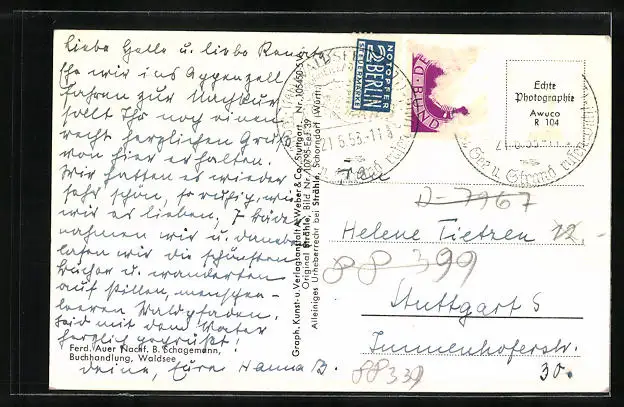 Liebe Gelle u. liebe Renate
Ehe wir ins Appenzell
fahren zur Nachkur
sollt Ihr noch einen
recht herzlichen Gruß
von hier erhalten.
Wir hatten es wieder
sehr schön, so ruhig, wie
wir es lieben, 7 Bäder
nahmen wir u. dann
lasen wir die schönsten
Bücher u. wanderten
auf stillen, menschen-
leeren Waldpfaden.
Seid mit dem Vater
herzlich gegrüßt!
Ferd. Auer Nachf. B. Schagemann,
Buchhandlung, Waldsee
Deine, Eure Hanna B.
Graph. Kunst- u. Verlagsanstalt A. Weber & Co., Stuttgart
Nr. 105450 SWS
Original Strähle, Bild Nr. 10295-EeF 39
Alleiniges Urheberrecht bei Strähle, Schorndorf (Württ.)
NOTOPFER
2 BERLIN
STEUERMARKE
D. BUND
21.6.53.-11
See u. Strand
Echte
Photographie
Awuco
R 104
See u. Strand
D-7967
Helene Tietzen
12.-
88 399
Stuttgart S
Immenhoferstr.
30.
88339